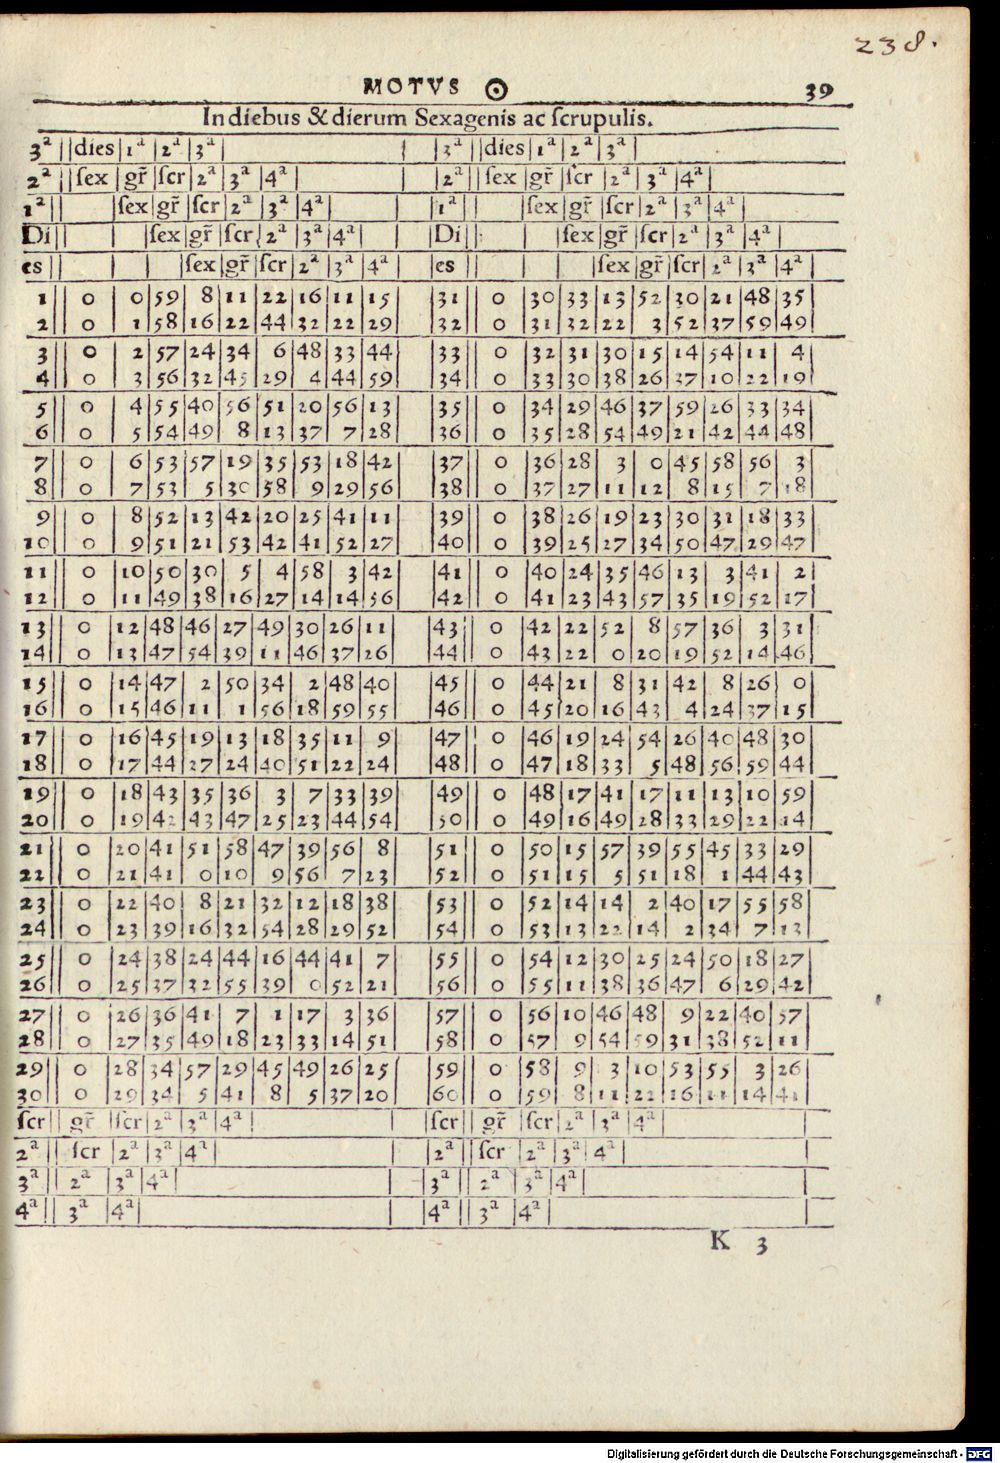 238.
MOTVS ☉ 39
In diebus & dierum Sexagenis ac ſcrupulis.
3ª dies 1ª 2ª 3ª 3ª dies 1ª 2ª 3ª
2ª ſex gr̃ ſcr 2ª 3ª 4ª 2ª ſex gr̃ ſcr 2ª 3ª 4ª
1ª ſex gr̃ ſcr 2ª 3ª 4ª 1ª ſex gr̃ ſcr 2ª 3ª 4ª
Di ſex gr̃ ſcr 2ª 3ª 4ª Di ſex gr̃ ſcr 2ª 3ª 4ª
es ſex gr̃ ſcr 2ª 3ª 4ª es ſex gr̃ ſcr 2ª 3ª 4ª
1 0 0 59 8 11 22 16 11 15 31 0 30 33 13 52 30 21 48 35
2 0 1 58 16 22 44 32 22 29 32 0 31 32 22 3 52 37 59 49
3 0 2 57 24 34 6 48 33 44 33 0 32 31 30 15 14 54 11 4
4 0 3 56 32 45 29 4 44 59 34 0 33 30 38 26 37 10 22 19
5 0 4 55 40 56 51 20 56 13 35 0 34 29 46 37 59 26 33 34
6 0 5 54 49 8 13 37 7 28 36 0 35 28 54 49 21 42 44 48
7 0 6 53 57 19 35 53 18 42 37 0 36 28 3 0 45 58 56 3
8 0 7 53 5 30 58 9 29 56 38 0 37 27 11 12 8 15 7 18
9 0 8 52 13 42 20 25 41 11 39 0 38 26 19 23 30 31 18 33
10 0 9 51 21 53 42 41 52 27 40 0 39 25 27 34 50 47 29 47
11 0 10 50 30 5 4 58 3 42 41 0 40 24 35 46 13 3 41 2
12 0 11 49 38 16 27 14 14 56 42 0 41 23 43 57 35 19 52 17
13 0 12 48 46 27 49 30 26 11 43 0 42 22 52 8 57 36 3 31
14 0 13 47 54 39 11 46 37 26 44 0 43 22 0 20 19 52 14 46
15 0 14 47 2 50 34 2 48 40 45 0 44 21 8 31 42 8 26 0
16 0 15 46 11 1 56 18 59 55 46 0 45 20 16 43 4 24 37 15
17 0 16 45 19 13 18 35 11 9 47 0 46 19 24 54 26 40 48 30
18 0 17 44 27 24 40 51 22 24 48 0 47 18 33 5 48 56 59 44
19 0 18 43 35 36 3 7 33 39 49 0 48 17 41 17 11 13 10 59
20 0 19 42 43 47 25 23 44 54 50 0 49 16 49 28 33 29 22 14
21 0 20 41 51 58 47 39 56 8 51 0 50 15 57 39 55 45 33 29
22 0 21 41 0 10 9 56 7 23 52 0 51 15 5 51 18 1 44 43
23 0 22 40 8 21 32 12 18 38 53 0 52 14 14 2 40 17 55 58
24 0 23 39 16 32 54 28 29 52 54 0 53 13 22 14 2 34 7 13
25 0 24 38 24 44 16 44 41 7 55 0 54 12 30 25 24 50 18 27
26 0 25 37 32 55 39 0 52 21 56 0 55 11 38 36 47 6 29 42
27 0 26 36 41 7 1 17 3 36 57 0 56 10 46 48 9 22 40 57
28 0 27 35 49 18 23 33 14 51 58 0 57 9 54 59 31 38 52 11
29 0 28 34 57 29 45 49 26 25 59 0 58 9 3 10 53 55 3 26
30 0 29 34 5 41 8 5 37 20 60 0 59 8 11 22 16 11 14 41
ſcr gr̃ ſcr 2ª 3ª 4ª ſcr gr̃ ſcr 2ª 3ª 4ª
2ª ſcr 2ª 3ª 4ª 2ª ſcr 2ª 3ª 4ª
3ª 2ª 3ª 4ª 3ª 2ª 3ª 4ª
4ª 3ª 4ª 4ª 3ª 4ª
K 3
Digitalisierung gefördert durch die Deutsche Forschungsgemeinschaft - DFG